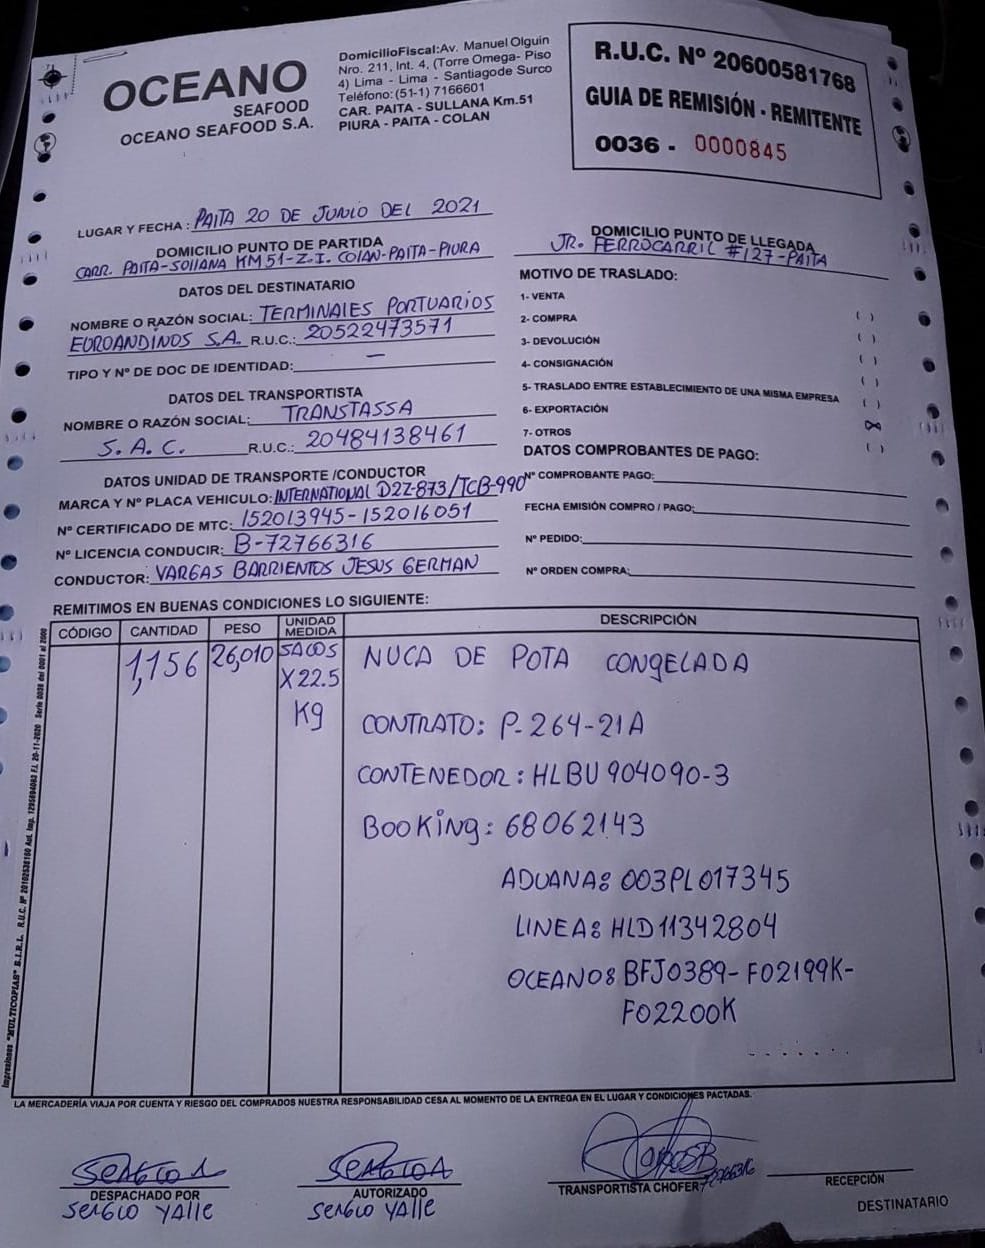 OCEANO
SEAFOOD
OCEANO SEAFOOD S.A.
DomicilioFiscal:Av. Manuel Olguin
Nro. 211, Int. 4, (Torre Omega- Piso
4) Lima - Lima - Santiagode Surco
Teléfono:(51-1) 7166601
CAR. PAITA - SULLANA Km.51
PIURA - PAITA - COLAN
R.U.C. Nº 20600581768
GUIA DE REMISIÓN - REMITENTE
0036 - 0000845
LUGAR Y FECHA : PAITA 20 DE JUNIO DEL 2021
DOMICILIO PUNTO DE PARTIDA
CARR. PAITA-SOLLANA KM 51-Z.I. COLAN-PAITA-PIURA
DOMICILIO PUNTO DE LLEGADA
JR. FERROCARRIL #127-PAITA
DATOS DEL DESTINATARIO
NOMBRE O RAZÓN SOCIAL: TERMINALES PORTUARIOS
EUROANDINOS S.A. R.U.C.: 20522473571
TIPO Y Nº DE DOC DE IDENTIDAD: —
DATOS DEL TRANSPORTISTA
NOMBRE O RAZÓN SOCIAL: TRANSTASSA
S.A.C. R.U.C.: 20484138461
DATOS UNIDAD DE TRANSPORTE /CONDUCTOR
MARCA Y Nº PLACA VEHICULO: INTERNATIONAL D2Z-873/TCB-990
Nº CERTIFICADO DE MTC: 152013945-152016051
Nº LICENCIA CONDUCIR: B-72766316
CONDUCTOR: VARGAS BARRIENTOS JESUS GERMAN
MOTIVO DE TRASLADO:
1- VENTA ( )
2- COMPRA ( )
3- DEVOLUCIÓN ( )
4- CONSIGNACIÓN ( )
5- TRASLADO ENTRE ESTABLECIMIENTO DE UNA MISMA EMPRESA ( )
6- EXPORTACIÓN (X)
7- OTROS ( )
DATOS COMPROBANTES DE PAGO:
Nº COMPROBANTE PAGO:
FECHA EMISIÓN COMPRO / PAGO:
Nº PEDIDO:
Nº ORDEN COMPRA:
REMITIMOS EN BUENAS CONDICIONES LO SIGUIENTE:
CÓDIGO CANTIDAD PESO UNIDAD MEDIDA DESCRIPCIÓN
1,156 26,010 SACOS NUCA DE POTA CONGELADA
X 22.5
Kg
CONTRATO: P-264-21A
CONTENEDOR: HLBU 904090-3
BOOKING: 68062143
ADUANA: 003PL017345
LINEA: HLD11342804
OCEANO: BFJ0389-F02199K-
F02200K
Impresiones "MULTICOPIAS" E.I.R.L.
LA MERCADERÍA VIAJA POR CUENTA Y RIESGO DEL COMPRADOS NUESTRA RESPONSABILIDAD CESA AL MOMENTO DE LA ENTREGA EN EL LUGAR Y CONDICIONES PACTADAS.
DESPACHADO POR
SERGIO YALLE
AUTORIZADO
SERGIO YALLE
TRANSPORTISTA CHOFER
RECEPCIÓN
DESTINATARIO